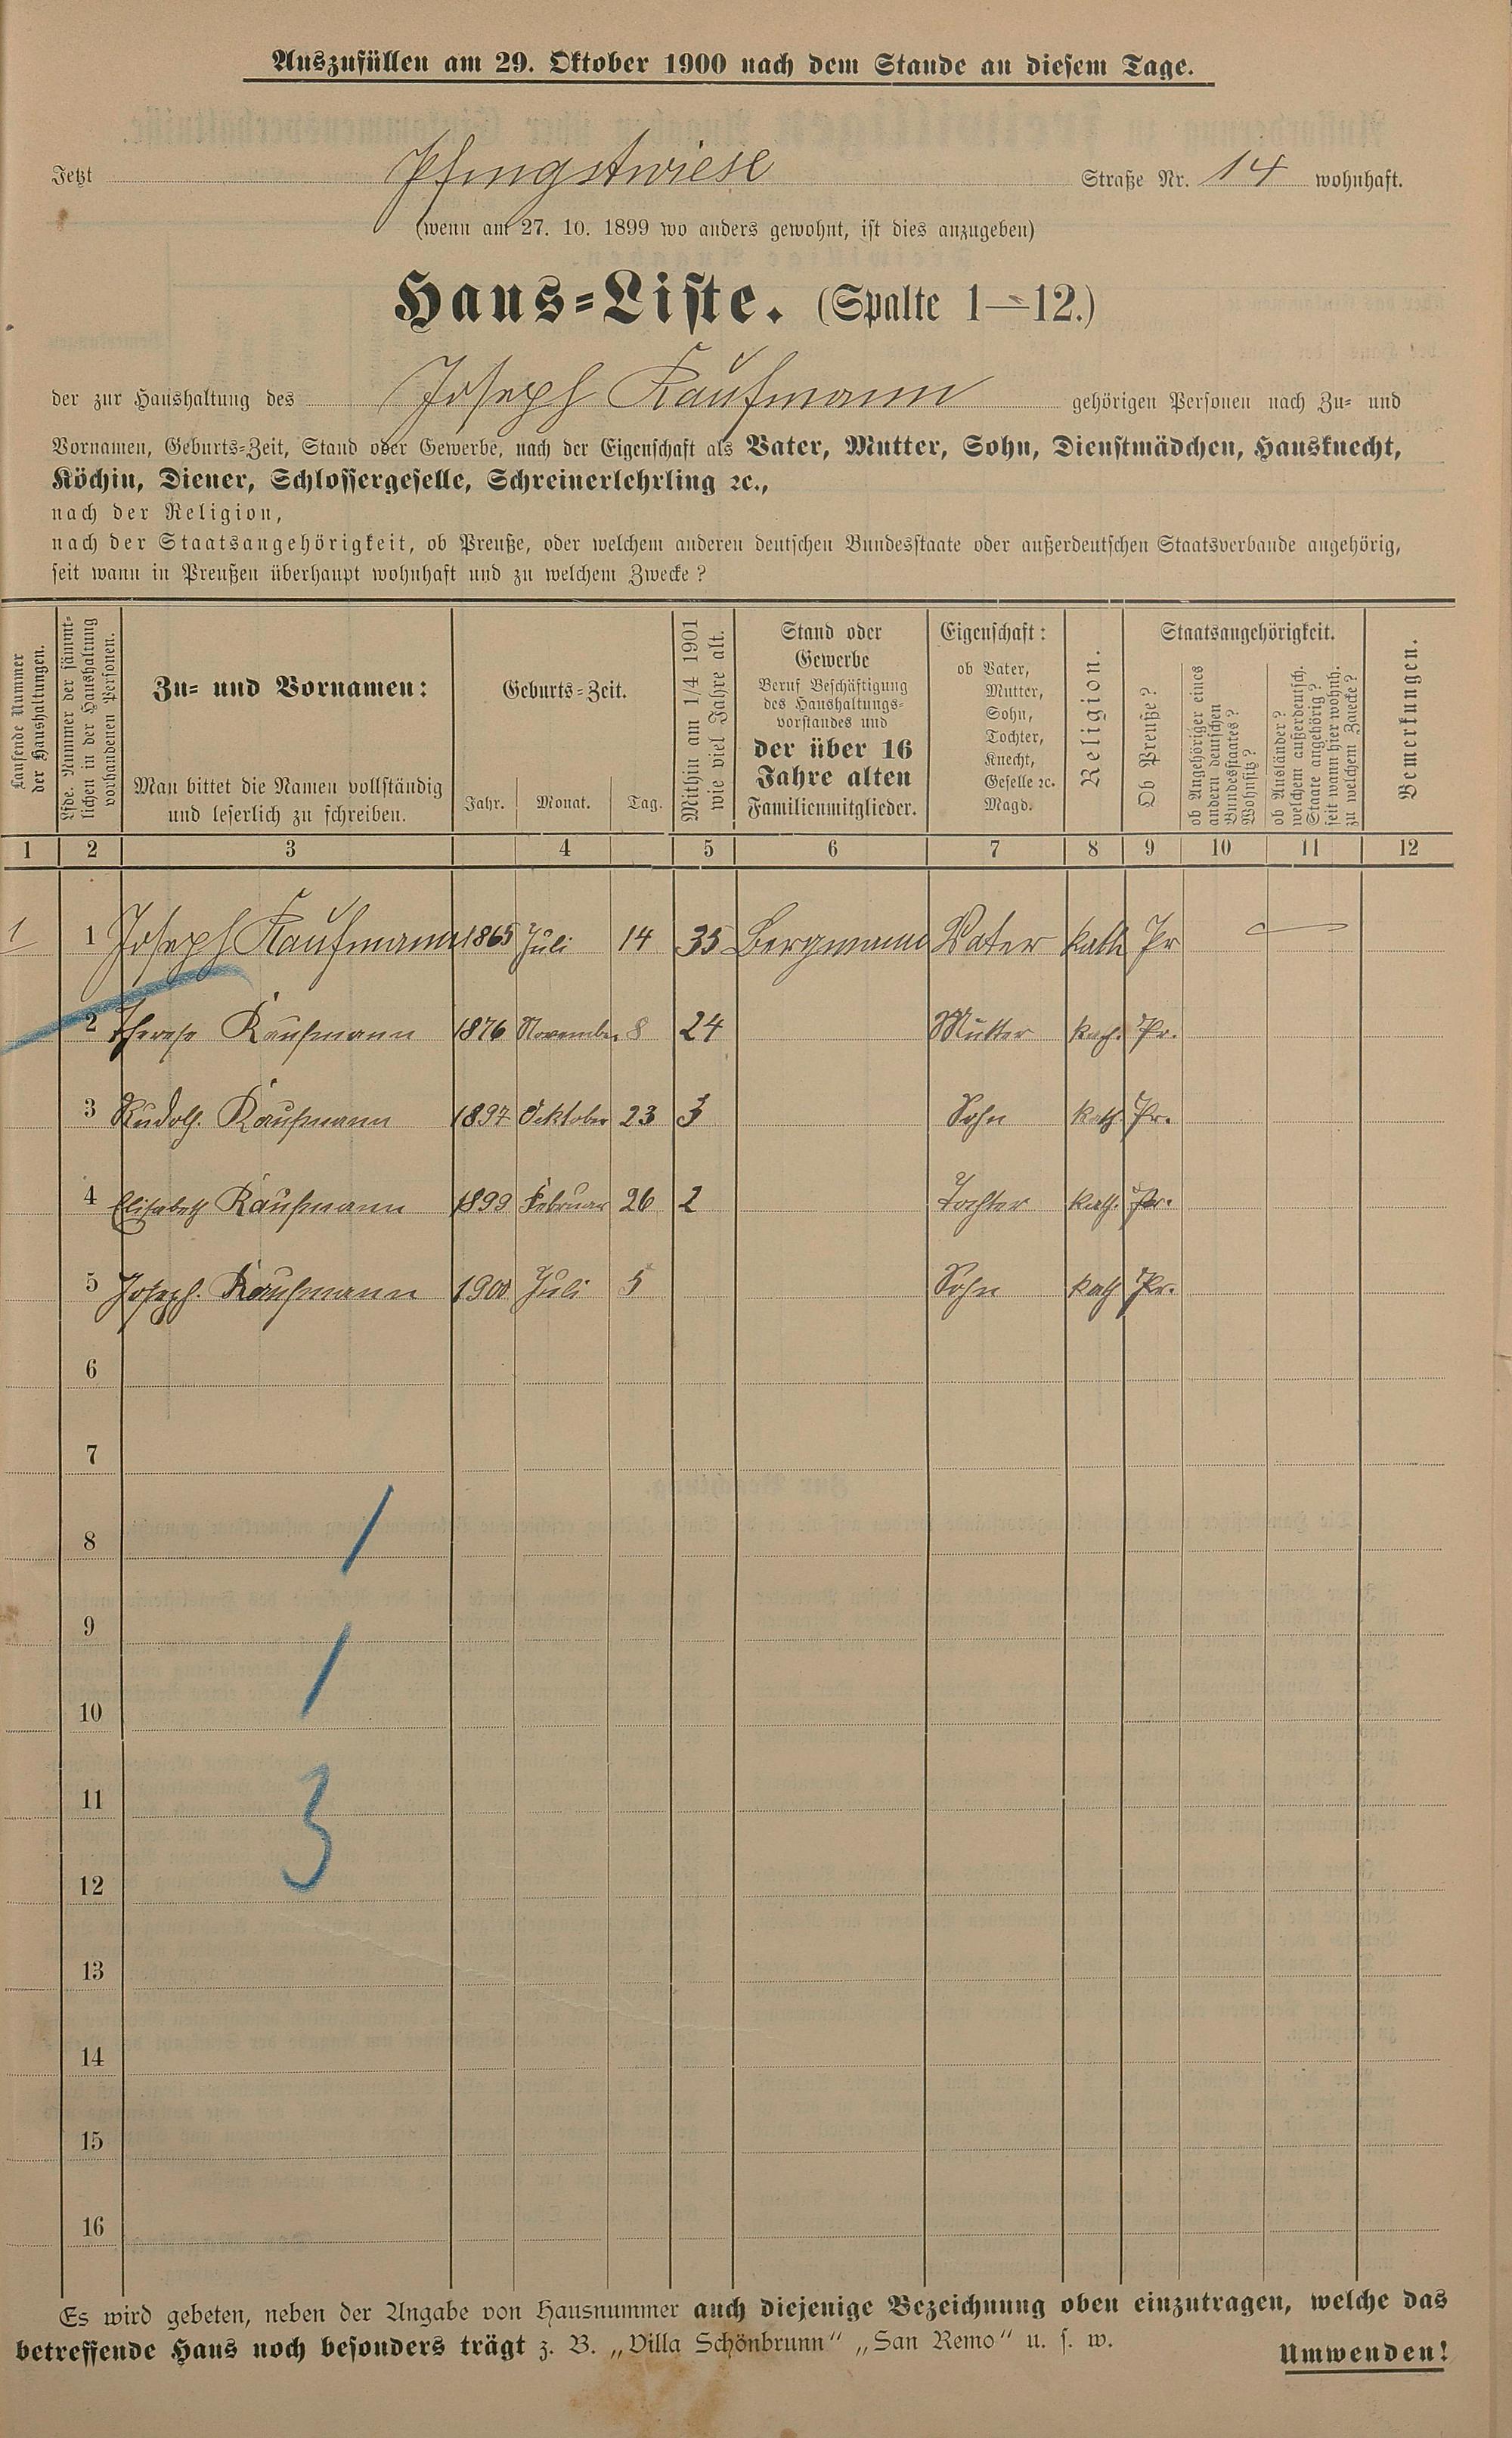 Auszufüllen am 29. Oktober 1900 nach dem Stande an diesem Tage.
Jetzt Pfingstwiese Straße Nr. 14 wohnhaft.
(wenn am 27. 10. 1899 wo anders gewohnt, ist dies anzugeben)
Haus-Liste. (Spalte 1—12.)
der zur Haushaltung des Joseph Kaufmann gehörigen Personen nach Zu- und
Vornamen, Geburts-Zeit, Stand oder Gewerbe, nach der Eigenschaft als Vater, Mutter, Sohn, Dienstmädchen, Hausknecht,
Köchin, Diener, Schlossergeselle, Schreinerlehrling ꝛc.,
nach der Religion,
nach der Staatsangehörigkeit, ob Preuße, oder welchem anderen deutschen Bundesstaate oder außerdeutschen Staatsverbande angehörig,
seit wann in Preußen überhaupt wohnhaft und zu welchem Zwecke?
Laufende Nummer
der Haushaltungen.
Lfde. Nummer der sämmt-
lichen in der Haushaltung
vorhandenen Personen.
Zu- und Vornamen:
Man bittet die Namen vollständig
und leserlich zu schreiben.
Geburts-Zeit.
Jahr. Monat. Tag.
Mithin am 1/4 1901
wie viel Jahre alt.
Stand oder
Gewerbe
Beruf Beschäftigung
des Haushaltungs-
vorstandes und
der über 16
Jahre alten
Familienmitglieder.
Eigenschaft:
ob Vater,
Mutter,
Sohn,
Tochter,
Knecht,
Geselle ꝛc.
Magd.
Religion.
Staatsangehörigkeit.
Ob Preuße?
ob Angehöriger eines
andern deutschen
Bundesstaates?
Wohnsitz?
ob Ausländer?
welchem außerdeutsch.
Staate angehörig?
seit wann hier wohnh.
zu welchem Zwecke?
Bemerkungen.
1 2 3 4 5 6 7 8 9 10 11 12
1 1 Joseph Kaufmann 1865 Juli 14 35 Bergmann Vater kath Pr
2 Therese Kaufmann 1876 November 8 24 Mutter kath. Pr.
3 Rudolf. Kaufmann 1897 Ocktober 23 3 Sohn kath. Pr.
4 Elisabeth Kaufmann 1899 Februar 26 2 Tochter kath. Pr.
5 Joseph. Kaufmann 1900 Juli 5 Sohn kath Pr.
6
7
8
9
10
11
3
12
13
14
15
16
Es wird gebeten, neben der Angabe von Hausnummer auch diejenige Bezeichnung oben einzutragen, welche das
betreffende Haus noch besonders trägt z. B. „Villa Schönbrunn“ „San Remo“ u. s. w.
Umwenden!